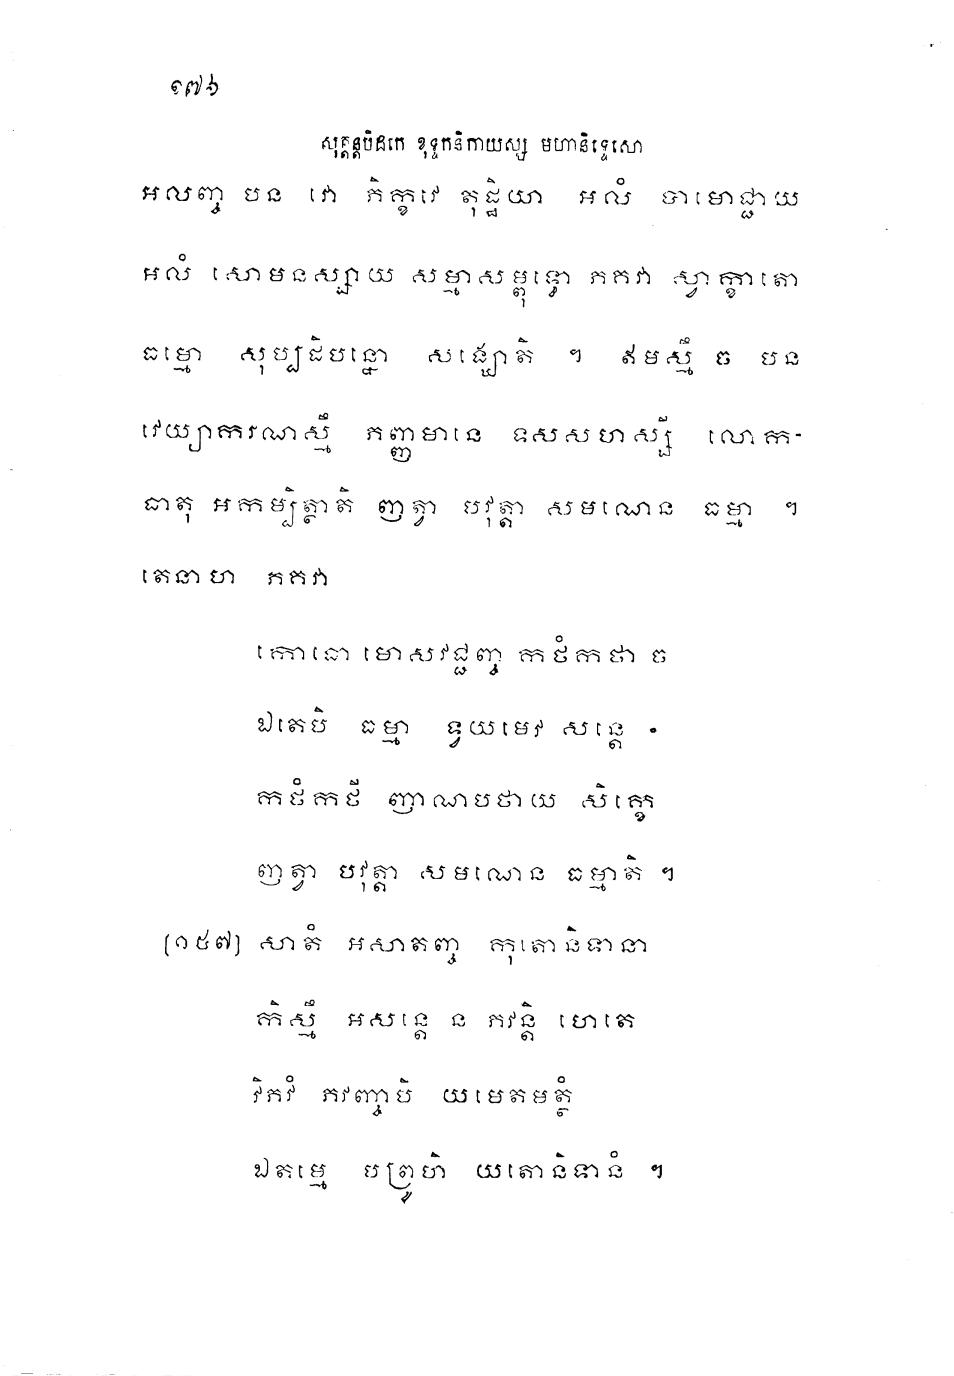 ១៧៦
សុត្តន្តបិដកេ ខុទ្ទកនិកាយស្ស មហានិទ្ទេសោ
អលញ្ច បន វោ ភិក្ខវេ តុដ្ឋិយា អលំ បាមោជ្ជាយ
អលំ សោមនស្សាយ សម្មាសម្ពុទ្ធោ ភគវា ស្វាក្ខាតោ
ធម្មោ សុប្បដិបន្នោ សង្ឃោតិ ។ ឥមស្មឹ ច បន
វេយ្យាករណស្មឹ ភញ្ញមានេ ទសសហស្សី លោក-
ធាតុ អកម្បិត្ថាតិ ញត្វា បវុត្តា សមណេន ធម្មា ។
តេនាហ ភគវា
កោធោ មោសវជ្ជញ្ច កថំកថា ច
ឯតេបិ ធម្មា ទ្វយមេវ សន្តេ
កថំកថី ញាណបថាយ សិក្ខេ
ញត្វា បវុត្តា សមណេន ធម្មាតិ ។
[១៥៧] សាតំ អសាតញ្ច កុតោនិទានា
កិស្មឹ អសន្តេ ន ភវន្តិ ហេតេ
វិភវំ ភវញ្ចាបិ យមេតមត្ថំ
ឯតម្មេ បព្រូហិ យតោនិទានំ ។